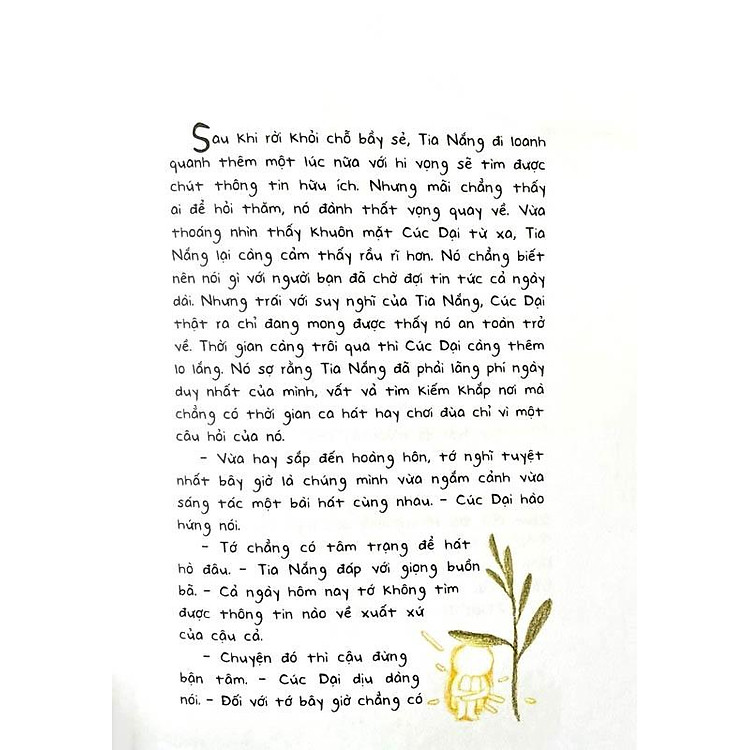 Sau khi rời khỏi chỗ bầy sẻ, Tia Nắng đi loanh
quanh thêm một lúc nữa với hi vọng sẽ tìm được
chút thông tin hữu ích. Nhưng mãi chẳng thấy
ai để hỏi thăm, nó đành thất vọng quay về. Vừa
thoáng nhìn thấy khuôn mặt Cúc Dại từ xa, Tia
Nắng lại càng cảm thấy rầu rĩ hơn. Nó chẳng biết
nên nói gì với người bạn đã chờ đợi tin tức cả ngày
dài. Nhưng trái với suy nghĩ của Tia Nắng, Cúc Dại
thật ra chỉ đang mong được thấy nó an toàn trở
về. Thời gian càng trôi qua thì Cúc Dại càng thêm
lo lắng. Nó sợ rằng Tia Nắng đã phải lãng phí ngày
duy nhất của mình, vất vả tìm kiếm khắp nơi mà
chẳng có thời gian ca hát hay chơi đùa chỉ vì một
câu hỏi của nó.
- Vừa hay sắp đến hoàng hôn, tớ nghĩ tuyệt
nhất bây giờ là chúng mình vừa ngắm cảnh vừa
sáng tác một bài hát cùng nhau. - Cúc Dại hào
hứng nói.
- Tớ chẳng có tâm trạng để hát
hò đâu. - Tia Nắng đáp với giọng buồn
bã. - Cả ngày hôm nay tớ không tìm
được thông tin nào về xuất xứ
của cậu cả.
- Chuyện đó thì cậu đừng
bận tâm. - Cúc Dại dịu dàng
nói. - Đối với tớ bây giờ chẳng có